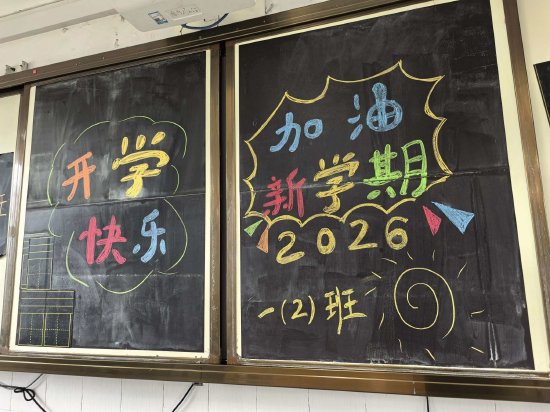 开学
快乐
加油
新学期
2026
一(2)班